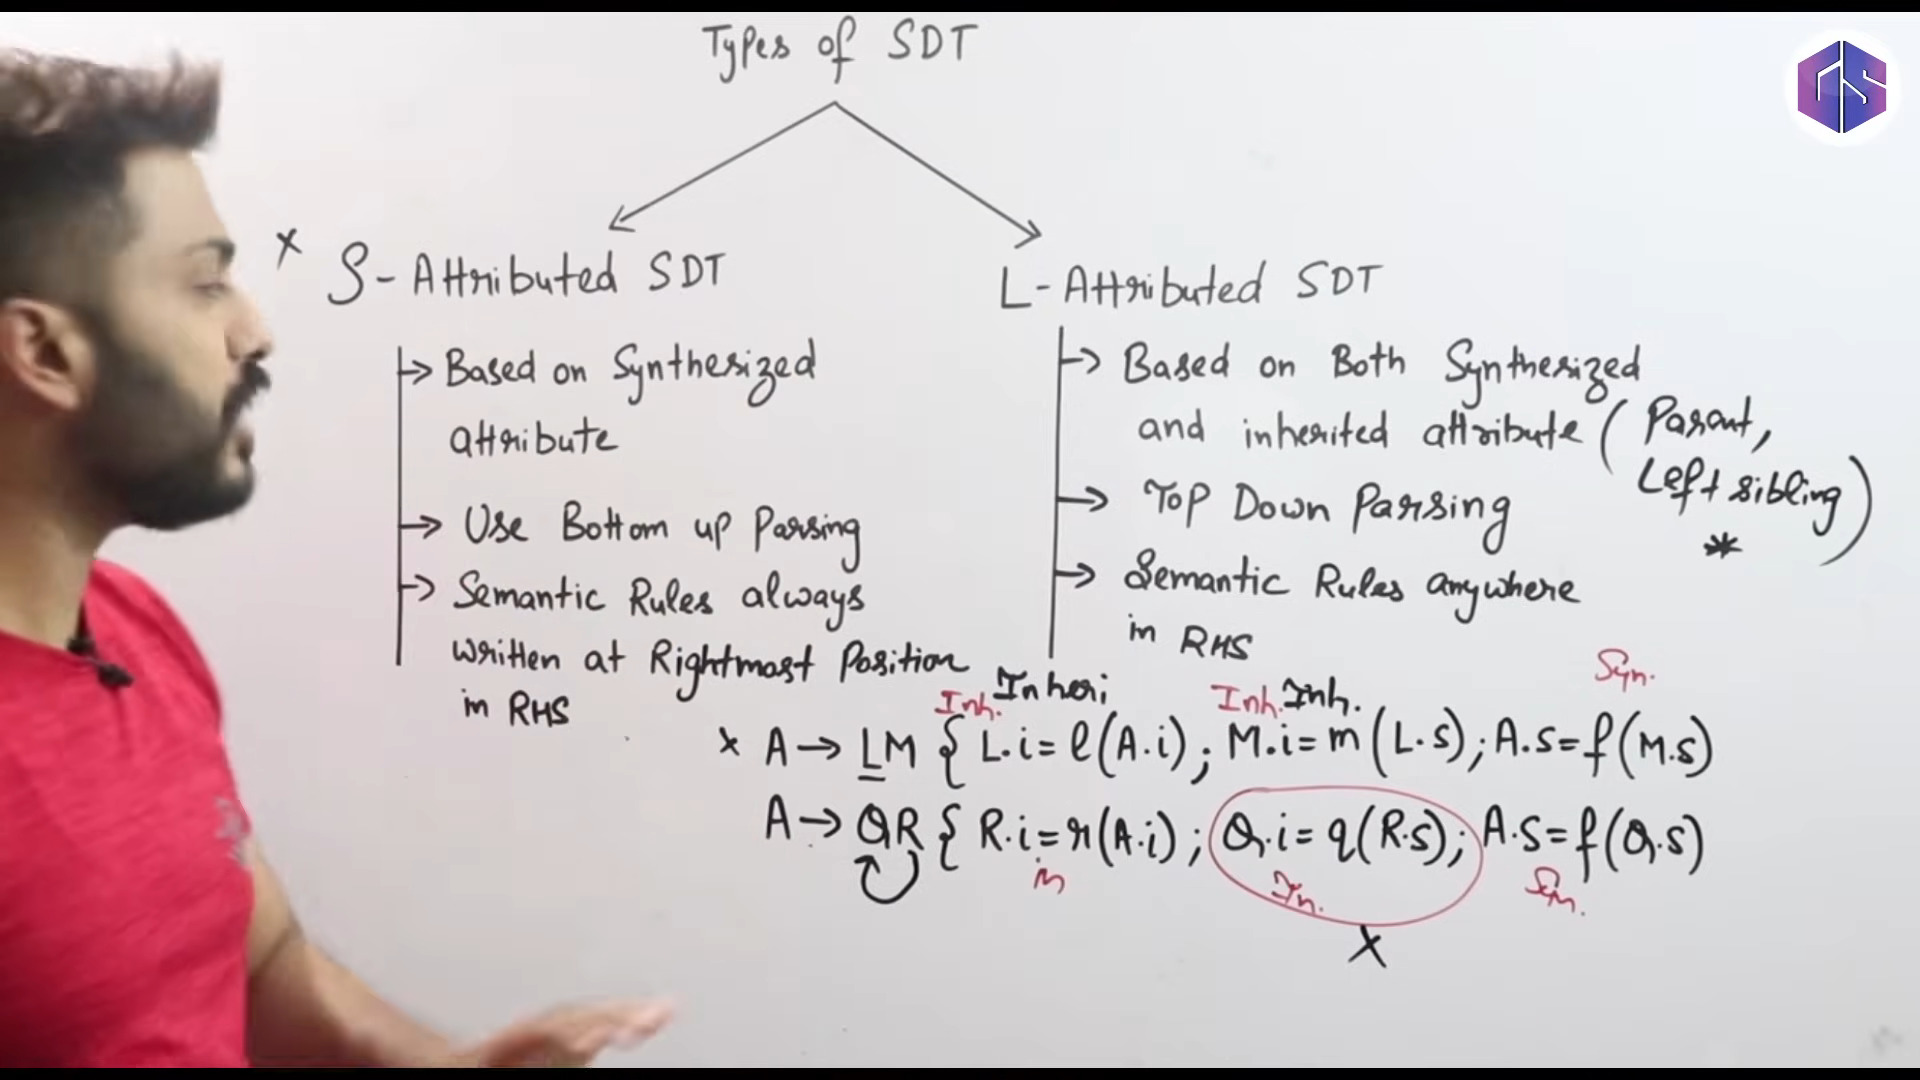 Types of SDT
x S-Attributed SDT
→ Based on Synthesized
attribute
→ Use Bottom up Parsing
→ Semantic Rules always
written at Rightmost Position
in RHS
L-Attributed SDT
→ Based on Both Synthesized
and inherited attribute (Parant,
Left sibling)
*
→ Top Down Parsing
→ Semantic Rules anywhere
in RHS
Inh. Inheri Inh. Inh. Syn.
x A→LM { L.i=l(A.i); M.i=m(L.s); A.s=f(M.s)
A→QR { R.i=r(A.i); Q.i=q(R.s); A.s=f(Q.s)
In In. Syn.
X
GS